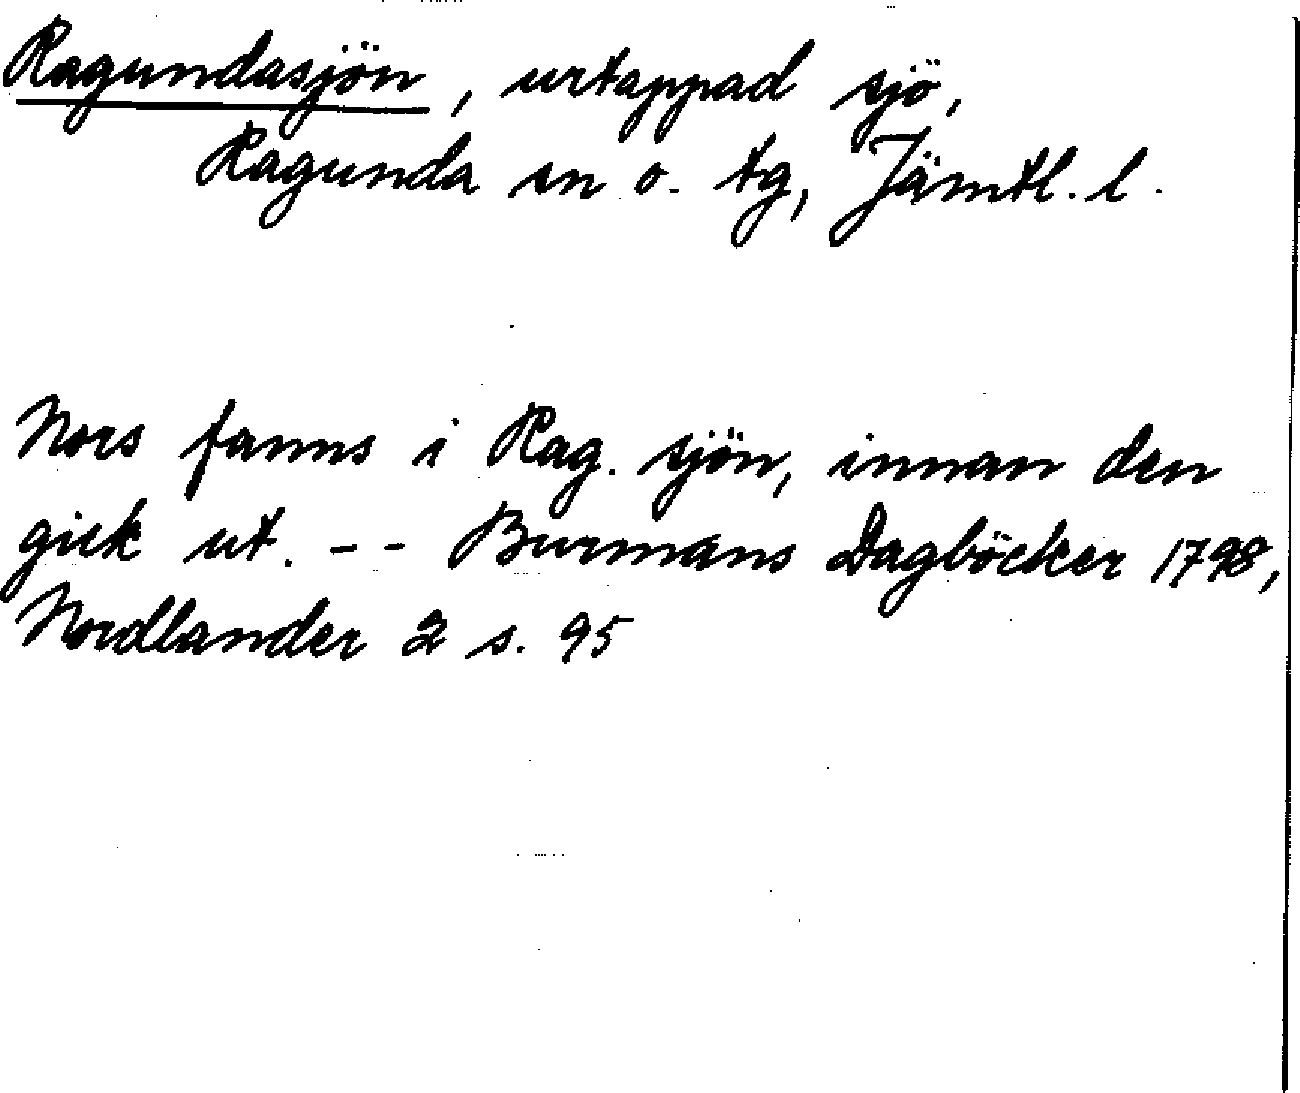 Ragundasjön, urtappad sjö,
Ragunda sn o. tg, Jämtl. l.
Nors fanns i Rag. sjön, innan den
gick ut. -- Burmans Dagböcker 1798,
Nordlander 2 s. 95